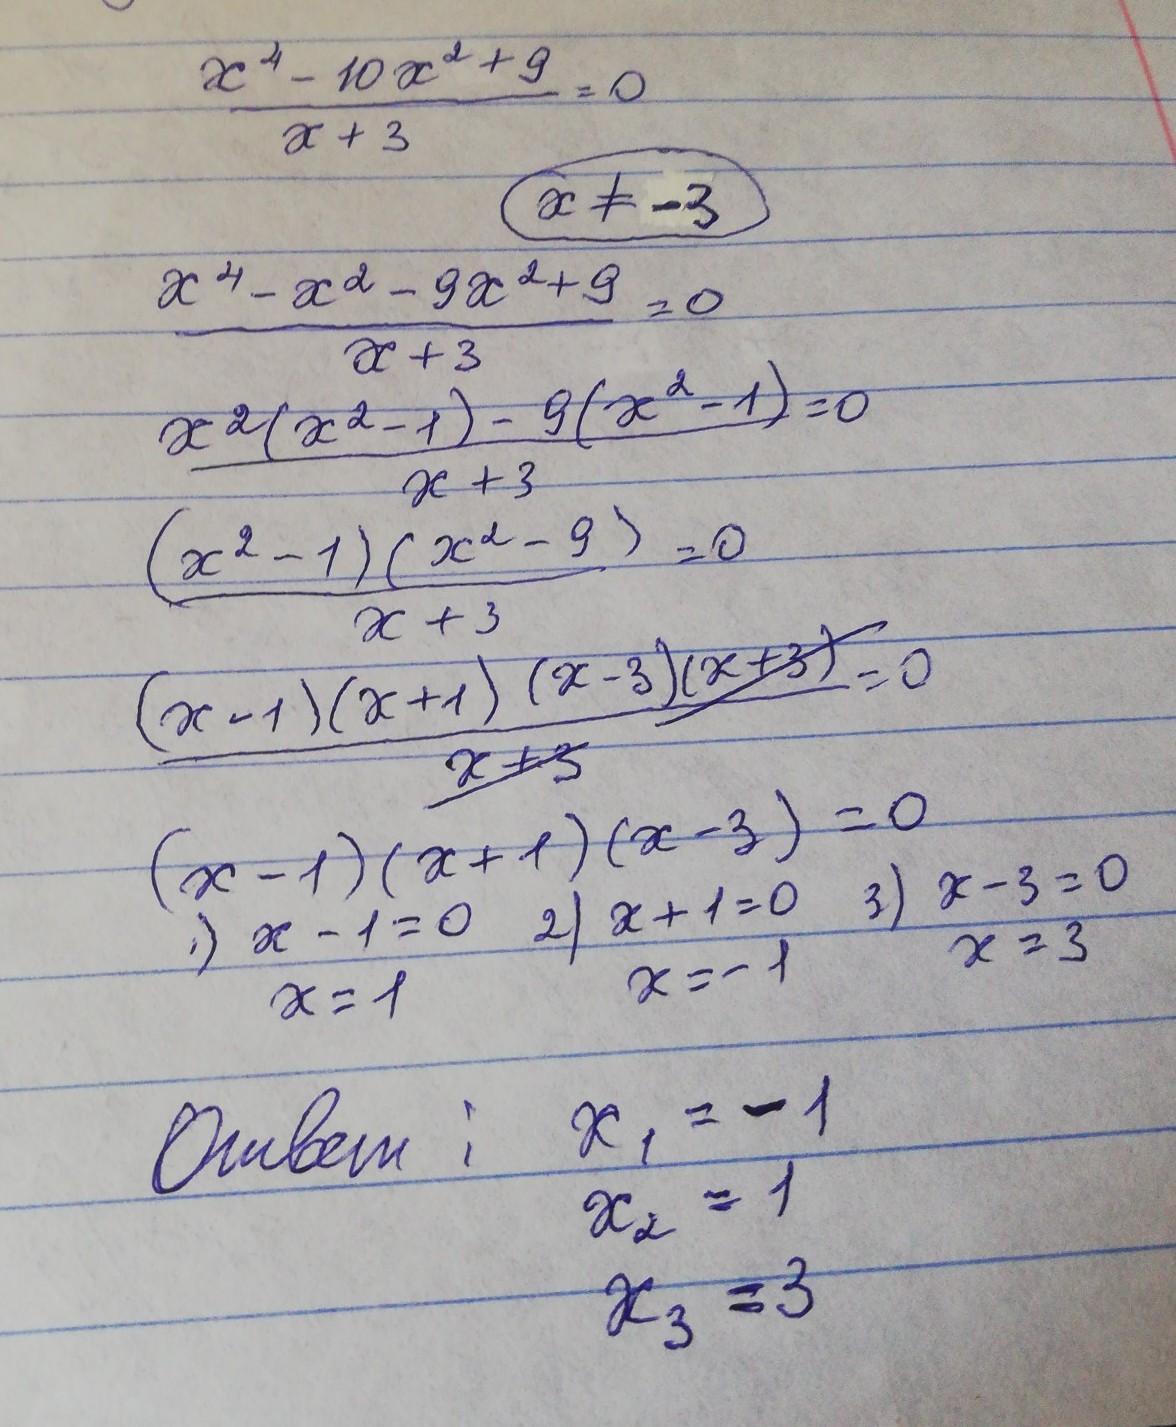 x⁴ - 10x² + 9 = 0
x + 3
x ≠ -3
x⁴ - x² - 9x² + 9 = 0
x + 3
x²(x² - 1) - 9(x² - 1) = 0
x + 3
(x² - 1)(x² - 9) = 0
x + 3
(x - 1)(x + 1)(x - 3)(x + 3) = 0
x + 3
(x - 1)(x + 1)(x - 3) = 0
1) x - 1 = 0 2) x + 1 = 0 3) x - 3 = 0
x = 1 x = -1 x = 3
Ответ: x₁ = -1
x₂ = 1
x₃ = 3